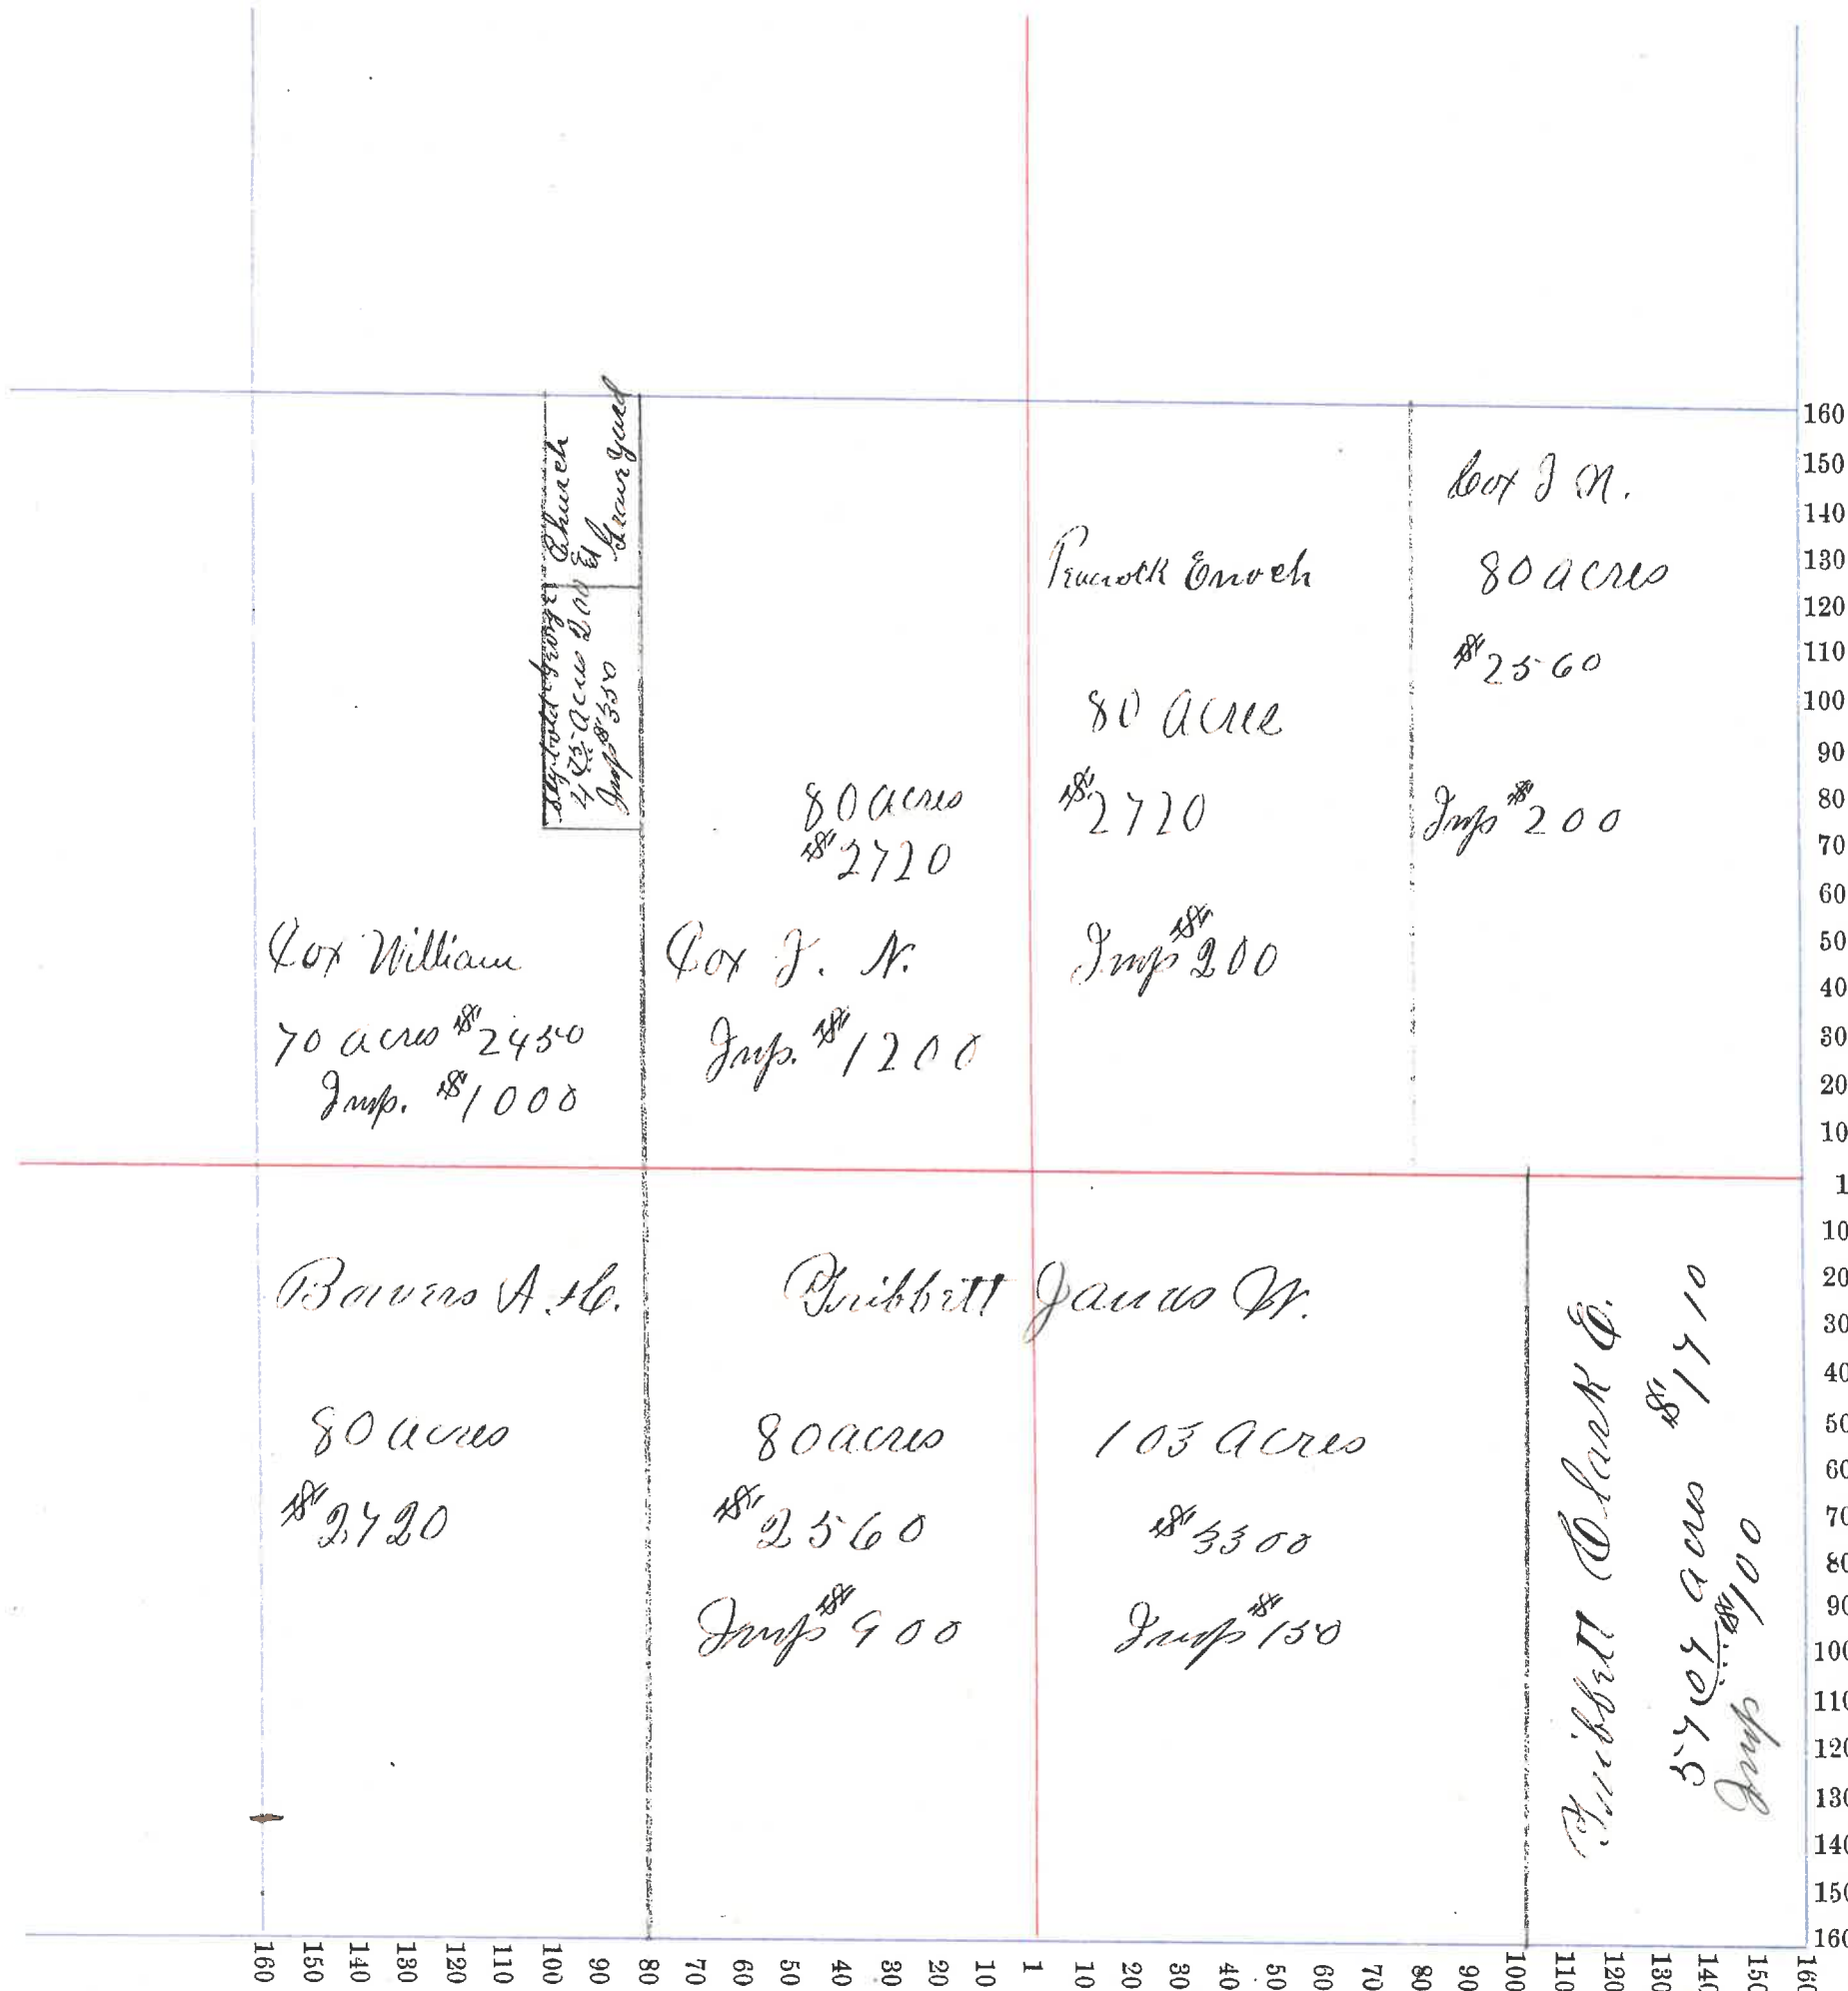 Church
& Grave Yard
George
4 75 Acres 200
Imp $350
Cox William
70 acres $2450
Imp. $1000
80 acres
$2720
Cox J. N.
Imp. $1200
Peacock Enoch
80 Acres
$2720
Imp $200
Cox J N.
80 acres
$2560
Imp $200
Bowers A. H.
80 acres
$2720
Tribbett James W.
80 acres
$2560
Imp $900
103 Acres
$3300
Imp $150
Tribbett Clark E.
57 07 acres $1710
Imp $100
160
150
140
130
120
110
100
90
80
70
60
50
40
30
20
10
1
10
20
30
40
50
60
70
80
90
100
110
120
130
140
150
160
160 150 140 130 120 110 100 90 80 70 60 50 40 30 20 10 1 10 20 30 40 50 60 70 80 90 100 110 120 130 140 150 160